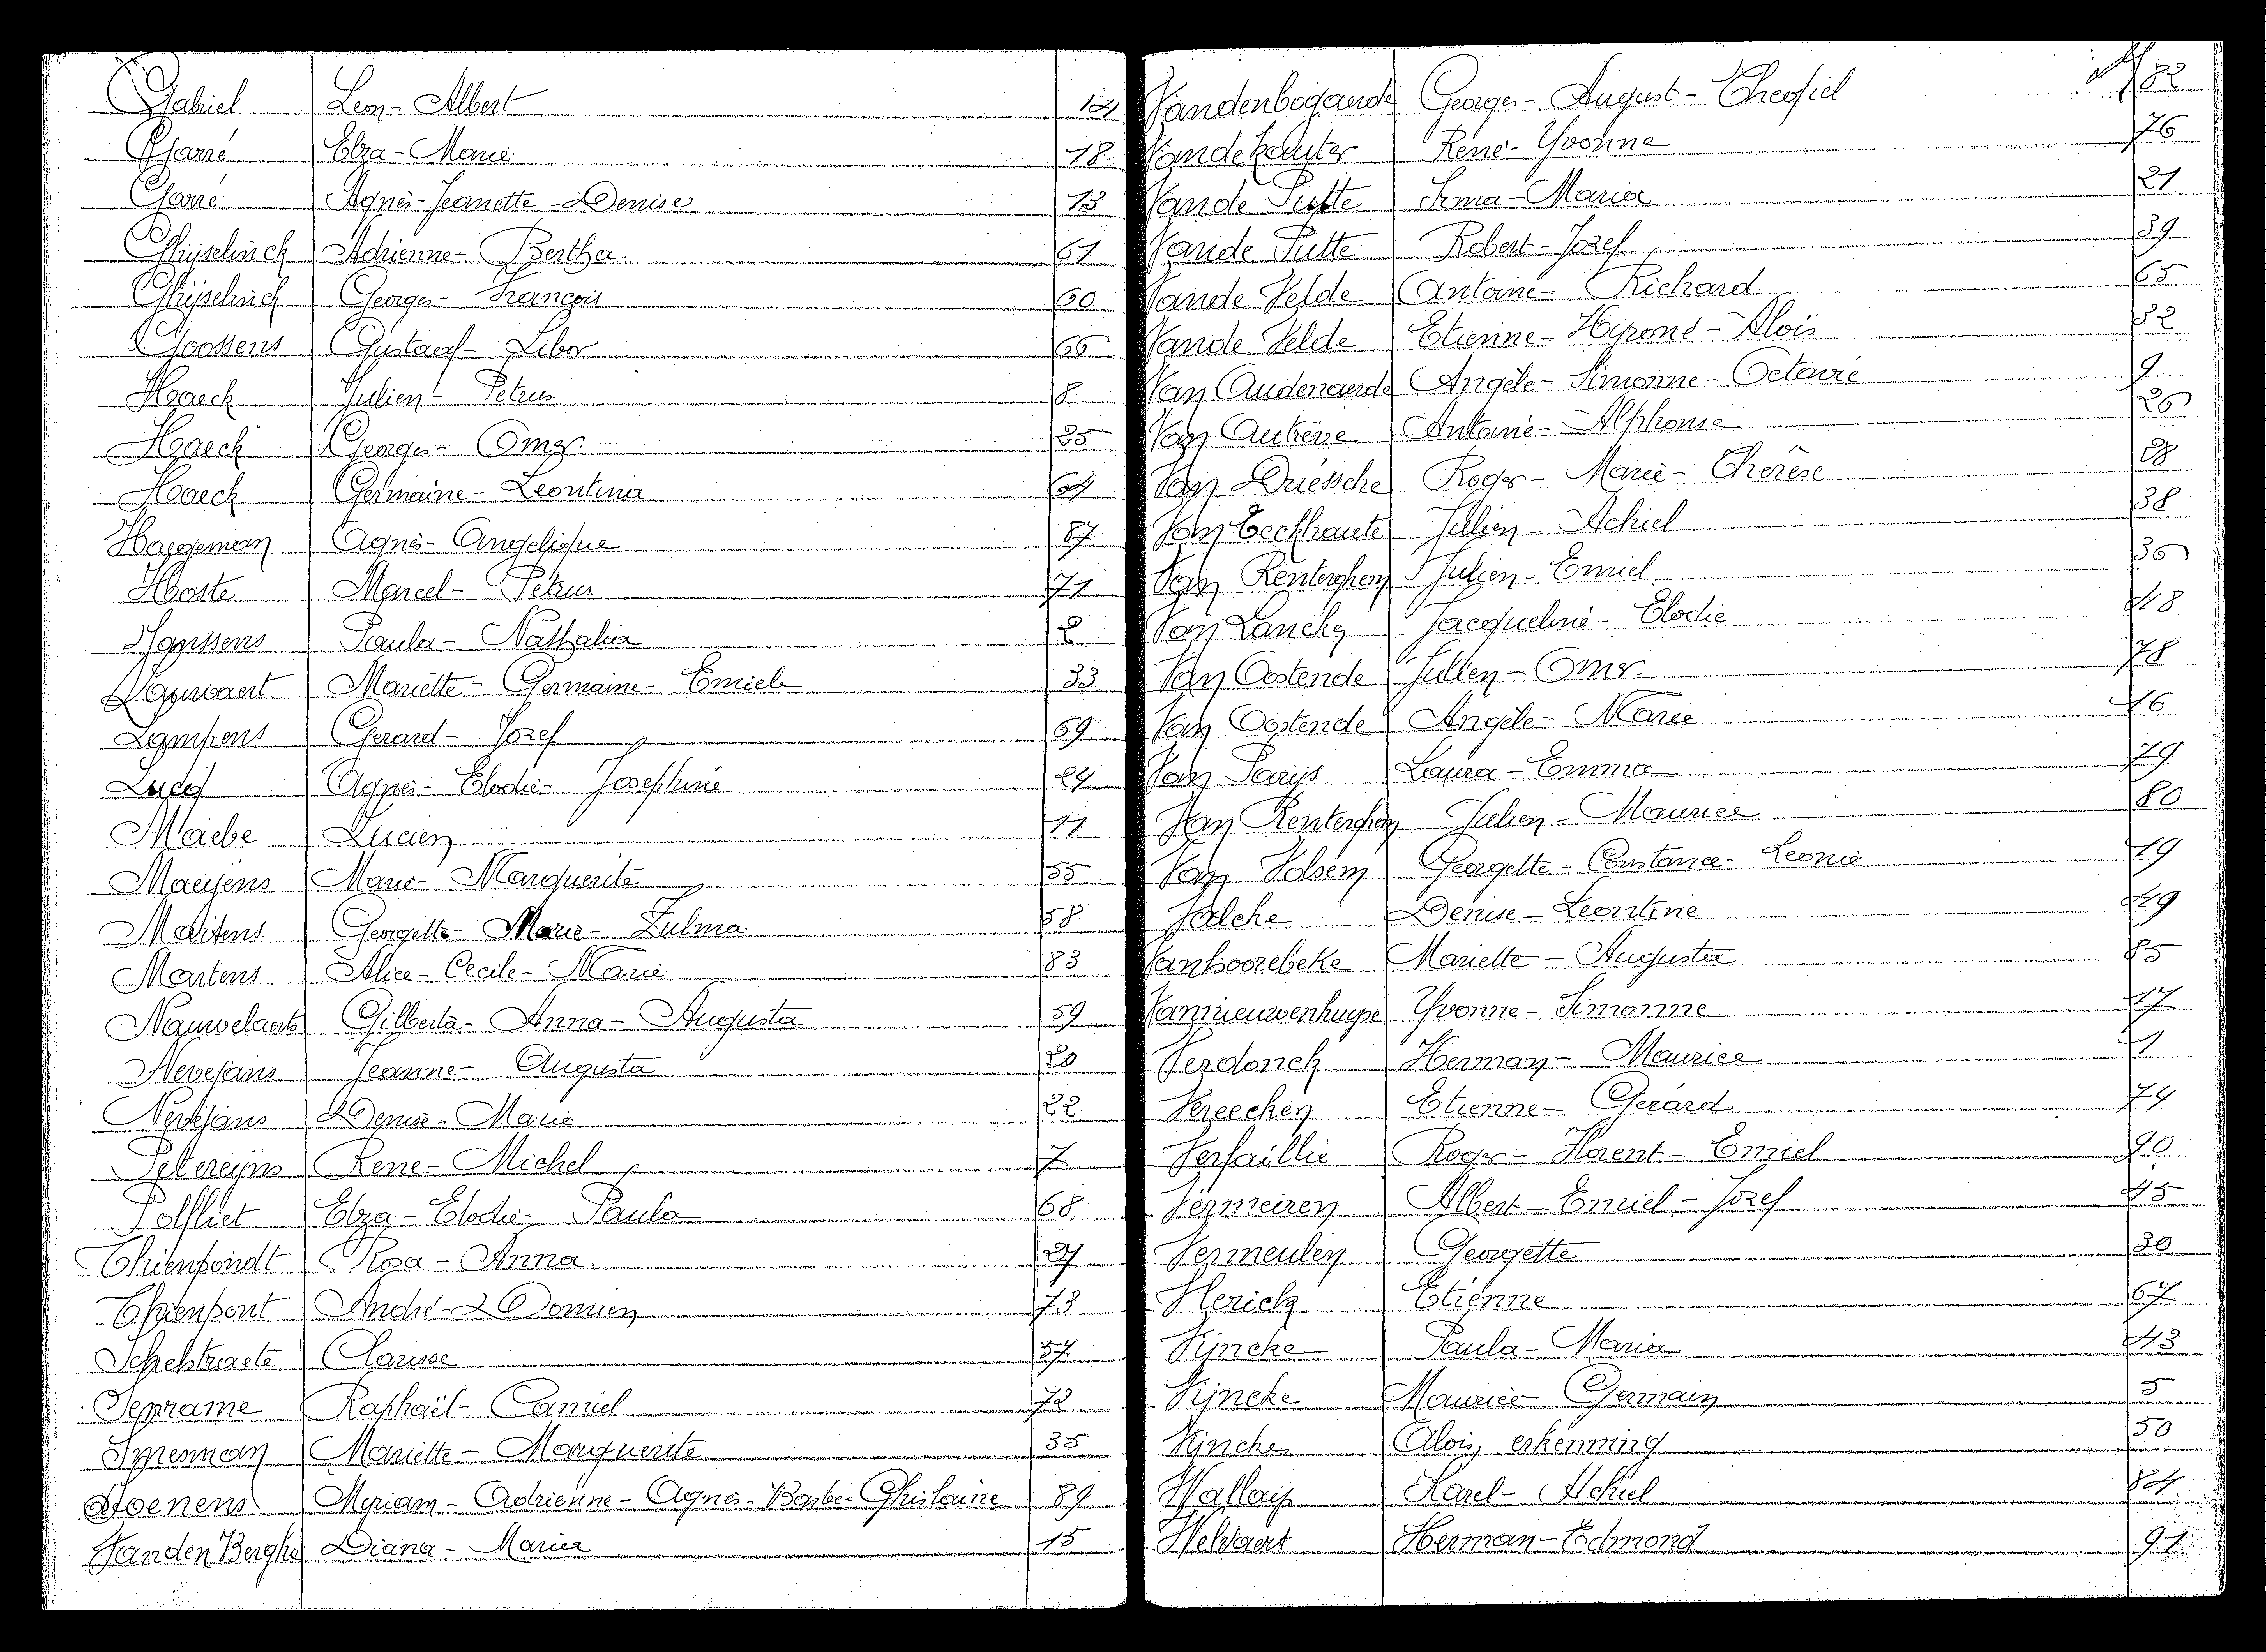 Gabriel Leon - Albert 14
Garré Elza - Marie 18
Garré Agnès - Jeanette - Denise 13
Ghijselinck Adrienne - Bertha 61
Ghijselinck Georges - François 60
Goossens Gustaaf - Libor 66
Haeck Julien - Petrus 8
Haeck Georges - Omer 25
Haeck Germaine - Leontina 64
Haegeman Agnès - Angelique 87
Hoste Marcel - Petrus 71
Janssens Paula - Nathalia 2
Mariette - Germaine - Emiele 33
Lampens Gerard - Jozef 69
Agnès - Elodie - Josephine 24
Maebe Lucien 11
Maeyens Marie - Marguerite 55
Martens Georgette - Marie - Zulma 58
Martens Alice - Cecile - Marie 83
Nauwelaerts Gilberta - Anna - Augusta 59
Nevejans Jeanne - Augusta 20
Nevejans Denise - Marie 22
Petereyns Rene - Michel 7
Polfliet Elza - Elodie - Paula 68
Thienpondt Rosa - Anna 27
Thienpont André - Domien 73
Schelstraete Clarisse 57
Seprame Raphaël - Camiel 72
Mariette - Marguerite 35
Stoenens Myriam - Adrienne - Agnes - Barbe - Ghislaine 89
Vanden Berghe Diana - Maria 15
Vandenbogaerde Georges - August - Theofiel 82
Vandekauter René - Yvonne 76
Vande Putte Irma - Maria 21
Vande Putte Robert - Jozef 39
Vande Velde Antoine - Richard 65
Vande Velde Etienne - Alois
Van Audenaerde Angèle - Simonne - Octavie 9
Van Autrève Antoine - Alphonse 26
Van Driessche Roger - Marie - Thérèse
Van Eeckhaute Julien - Achiel 38
Van Renterghem Julien - Emiel 36
Van Lancker Jacqueline - Elodie 48
Van Oostende Julien - Omer 78
Van Oostende Angèle - Marie 46
Van Parijs Laura - Emma 79
Van Renterghem Julien - Maurice 80
Van Volsem Georgette - Constance - Leonie 19
Valcke Denise - Leontine 49
Vanhoorebeke Mariette - Augusta 85
Vannieuwenhuyse Yvonne - Simonne 17
Verdonck Herman - Maurice 1
Vereecken Etienne - Gerard 74
Verfaillie Roger - Florent - Emiel 90
Vermeiren Albert - Emiel - Jozef 45
Vermeulen Georgette 30
Vlerick Etienne 67
Vijncke Paula - Maria 43
Vijncke Maurice - Germain 5
Vijncke Alois erkenning 50
Wallays Karel - Achiel 84
Welvaert Herman - Edmond 91